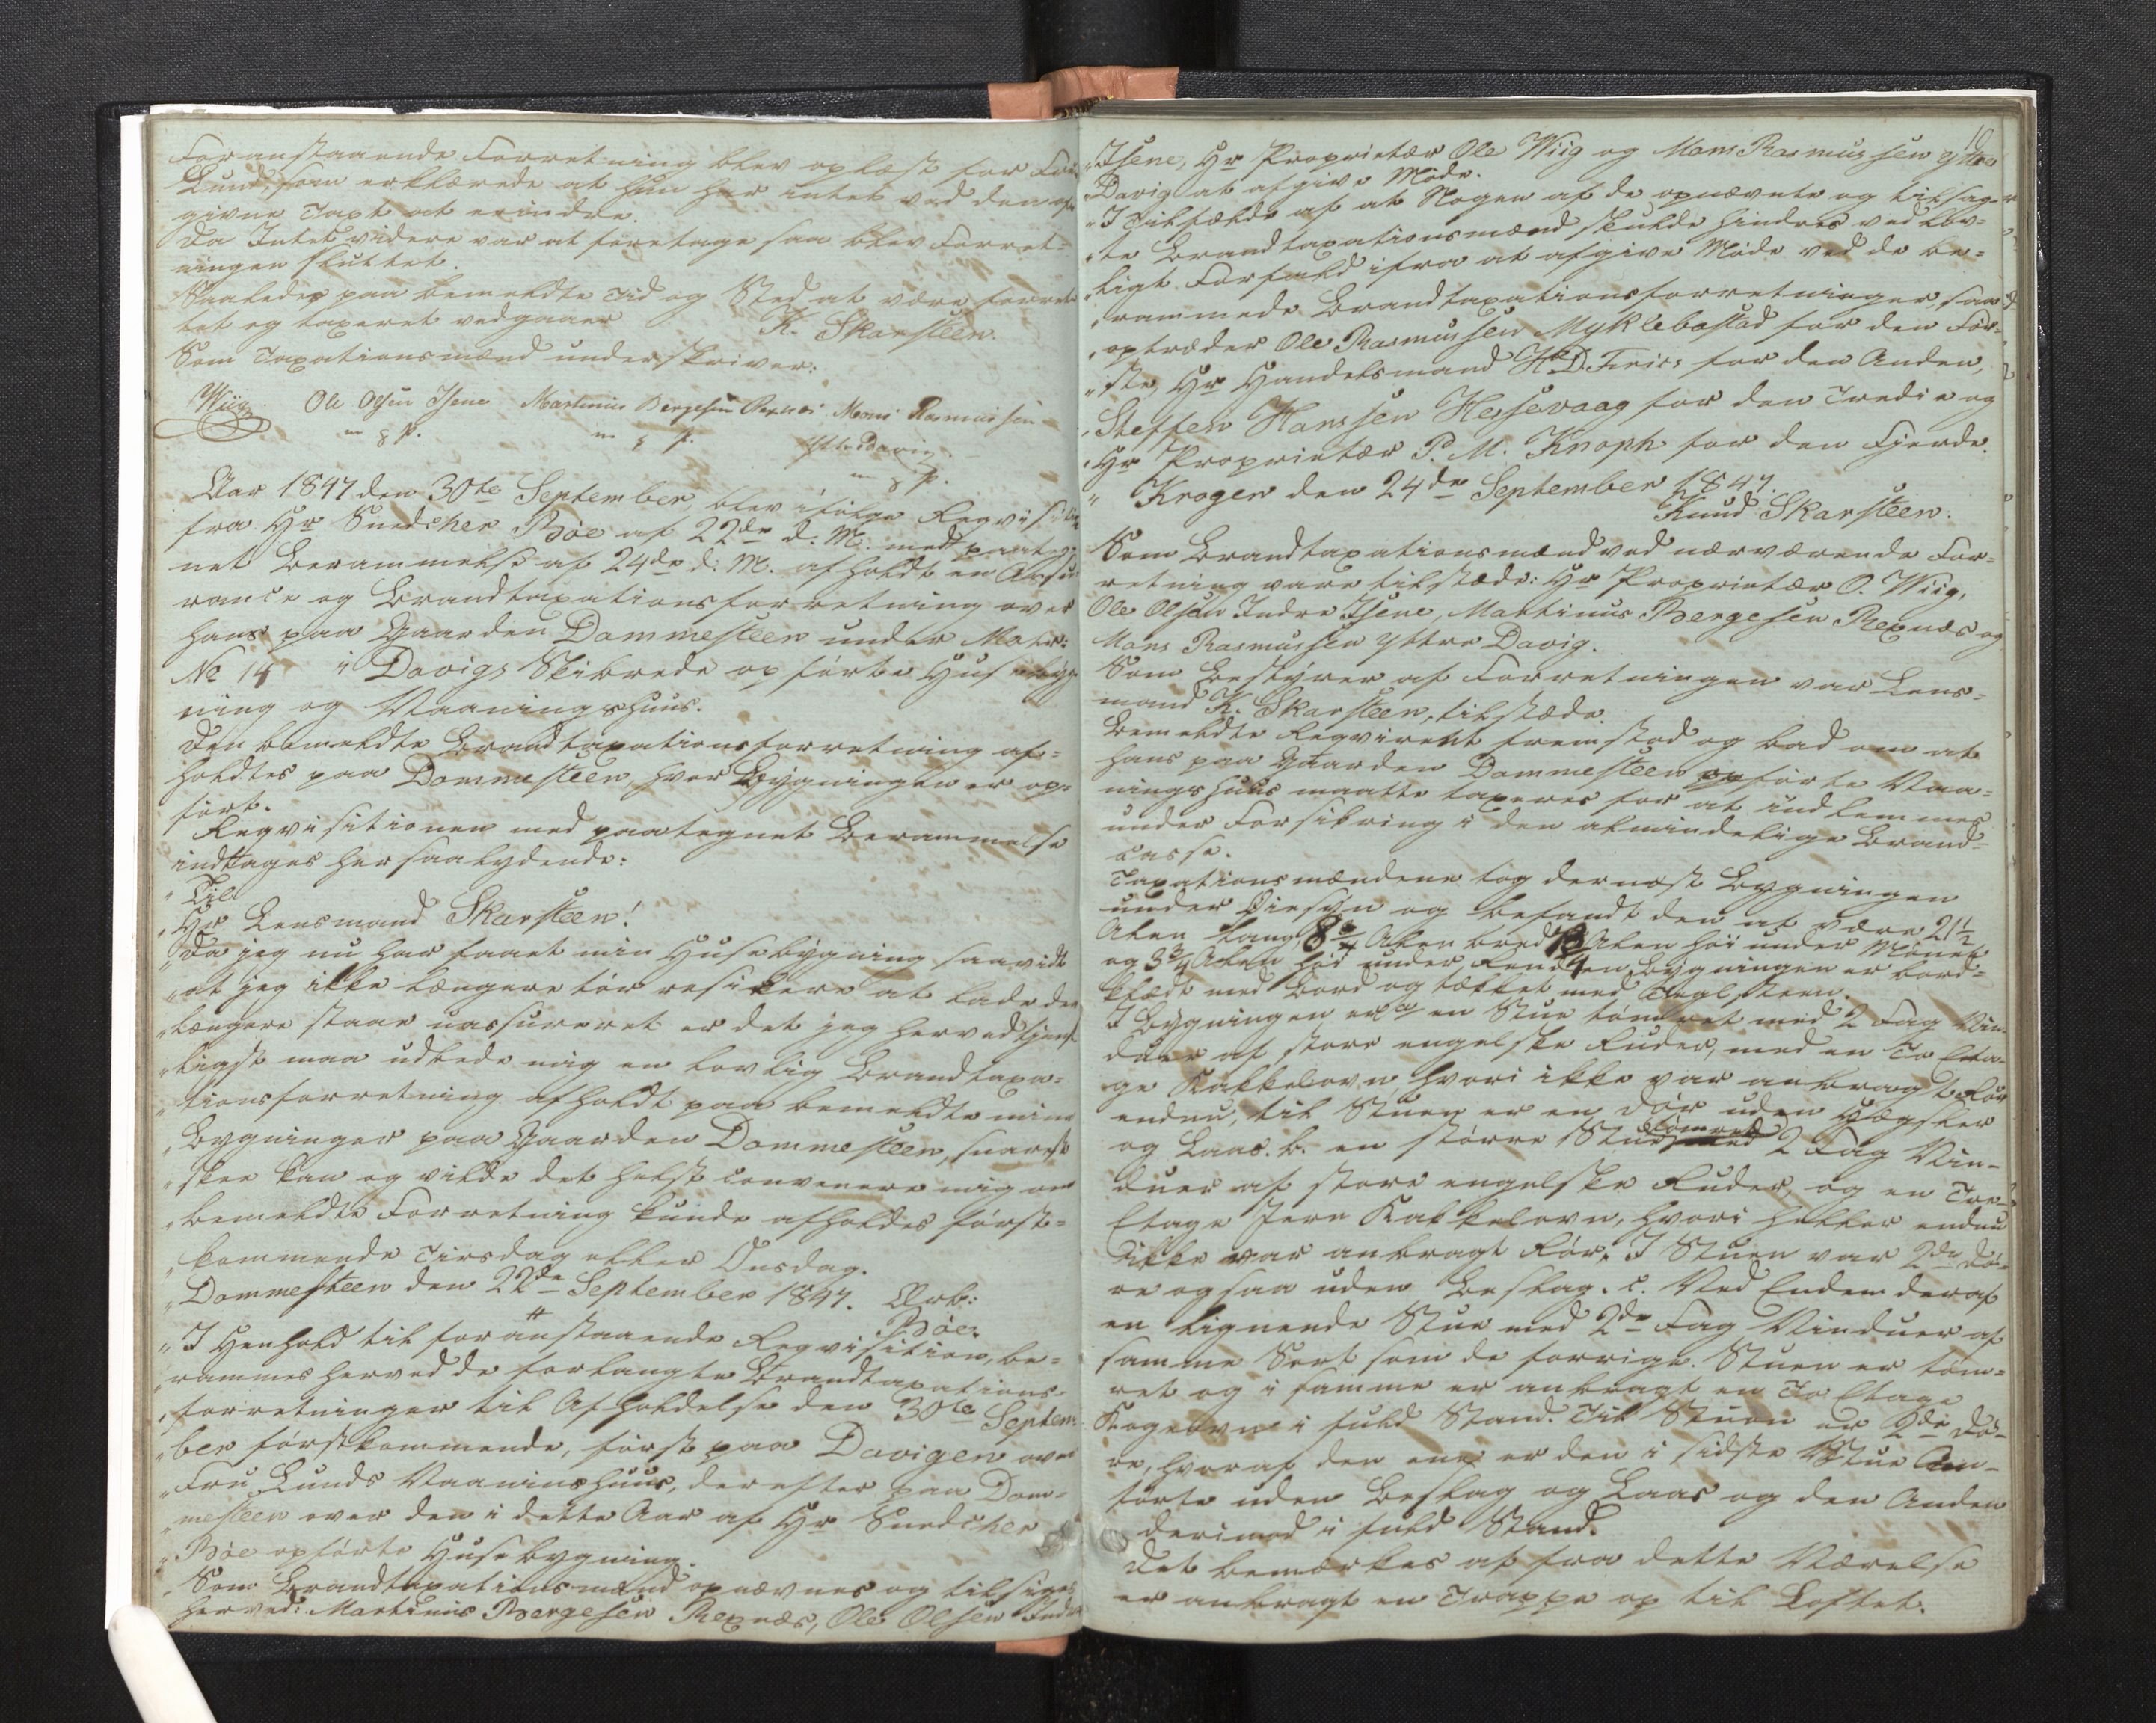 Foranstaaende Forretning blev oplæst for Fru
Lund, som erklærede at hun har intet ved den af-
givne Taxt at erindre.
Da Intet videre var at foretage saa blev Forret-
ningen sluttet.
Saaledes paa bemeldte Tid og Sted at være forret-
tet og taxeret vedgaaer
K. Skarsteen.
Som Taxationsmænd underskriver:
Wiig Ole Olsen Isene Martinus Bergesen Rexnæs Mons Rasmussen
m p. m p. Ytre Davig
m p.
Aar 1847 den 30te September, blev ifølge Reqvisition
fra Hr Snedcher Bøe af 22de d. M. med paateg-
net Berammelse af 24de d. M. afholdt en Assu-
rance og Brandtaxationsforretning over
hans paa Gaarden Dommesteen under Matr:
No 14 i Davigs Skibrede opførte Husebyg-
ning og Vaaningshuus.
Den bemeldte Brandtaxationsforretning af-
holdtes paa Dommesteen, hvor Bygningen er op-
ført.
Reqvisitionen med paategnet Berammelse
indtages her saalydende:
" Til
" Hr Lensmand Skarsteen!
" Da jeg nu har faaet min Husebygning saavidt
" at jeg ikke længere tør resikere at lade den
" længere staae uassureret er det jeg herved tjenst-
" ligst maa udbede mig en lovlig Brandtaxa-
" tionsforretning afholdt paa bemeldte mine
" Bygninger paa Gaarden Dommesteen, snarest
" skee kan og vilde det helst convenere mig om
" bemeldte Forretning kunde afholdes først-
" kommende Tirsdag eller Onsdag.
" Dommesteen den 22de September 1847. Ærb:
Bøe.
" I Henhold til foranstaaende Reqvisition, be-
" rammes herved de forlangte Brandtaxations-
" forretninger til Afholdelse den 30te Septem-
" ber førstkommende, først paa Davigen over
" Fru Lunds Vaaninshuus, derefter paa Dom-
" mesteen over den i dette Aar af Hr Snedcher
" Bøe opførte Husebygning.
" Som Brandtaxationsmænd opnævnes og tilsiges
" herved: Martinus Bergesen Rexnæs, Ole Olsen Indre
10
" Isene, Hr Proprietær Ole Wiig og Mons Rasmussen Ytre
" Davig at afgive Møde.
" I Tilfælde af at Nogen af de opnævnte og tilsag-
" te Brandtaxationsmænd skulde hindres ved lov-
" ligt Forfald ifra at afgive Møde ved de be-
" rammede Brandtaxationsforretninger saa
" optræder Ole Rasmussen Myklebostad for den Før-
" ste, Hr Handelsmand H. D. Friis for den Anden,
" Steffen Hanssen Hessevaag for den Tredie og
" Hr Proprietær P. M. Knoph for den Fjerde.
" Krogen den 24de September 1847.
Knud Skarsteen.
Som Brandtaxationsmænd ved nærværende For-
retning vare tilstæde: Hr Proprietær O. Wiig,
Ole Olsen Indre Isene, Martinus Bergesen Rexnæs og
Mons Rasmussen Yttre Davig.
Som Bestyrer af Forretningen var Lens-
mand K. Skarsteen, tilstæde.
Bemeldte Reqvirent fremstod og bad om at
hans paa Gaarden Dommesteen opførte Vaa-
ningshuus maatte taxeres for at indlemmes
under Forsikring i den almindelige Brand-
casse.
Taxationsmændene tog dernæst Bygningen
under Øiesyn og befandt den at være 21½
Alen lang, 8¾ Alen bred Alen høi under Mønet
og 3¾ Alen høi under Rend Bygningen er bord-
klædt med Bord og tækket med Teglsteen.
I Bygningen er a/ en Stue tømret med 2 Fag Vin-
duer af store engelske Ruder, med en To Eta-
ge Kakkelovn hvori ikke var anbragt Rør
endnu, til Stuen er en Dør uden Hægsler
og Laas. b. en større Stue tømret 2 Fag Vin-
duer af store engelske Ruder, og en Tre-
Etage Jern Kakkelovn, hvori heller endnu
ikke var anbragt Rør. I Stuen var 2de Dø-
re ogsaa uden Beslag. c. Ved Enden deraf
en lignende Stue med 2de Fag Vinduer af
samme Sort som de forrige. Stuen er tøm-
ret og i samme er anbragt en To Etage
Kogeovn i fuld Stand. Til Stuen er 2de Dø-
re, hvoraf den ene er den i sidste Stue An-
førte uden Beslag og Laas og den Anden
derimod i fuld Stand.
Det bemærkes at fra dette Værelse
er anbragt en Trappe op til Loftet.